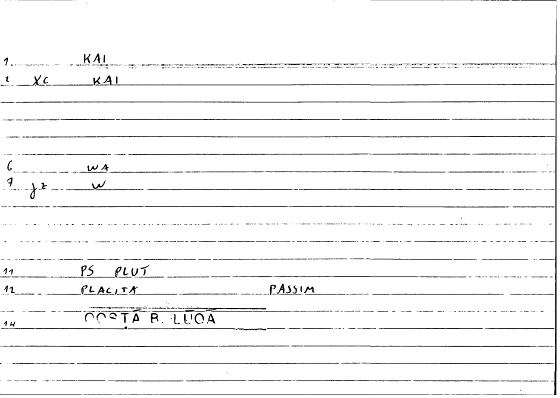 1. KAI
2 XC KAI
6 WA
7 jz W
11 PS PLUT
12 PLACITA PASSIM
14 COSTA B. LUCA